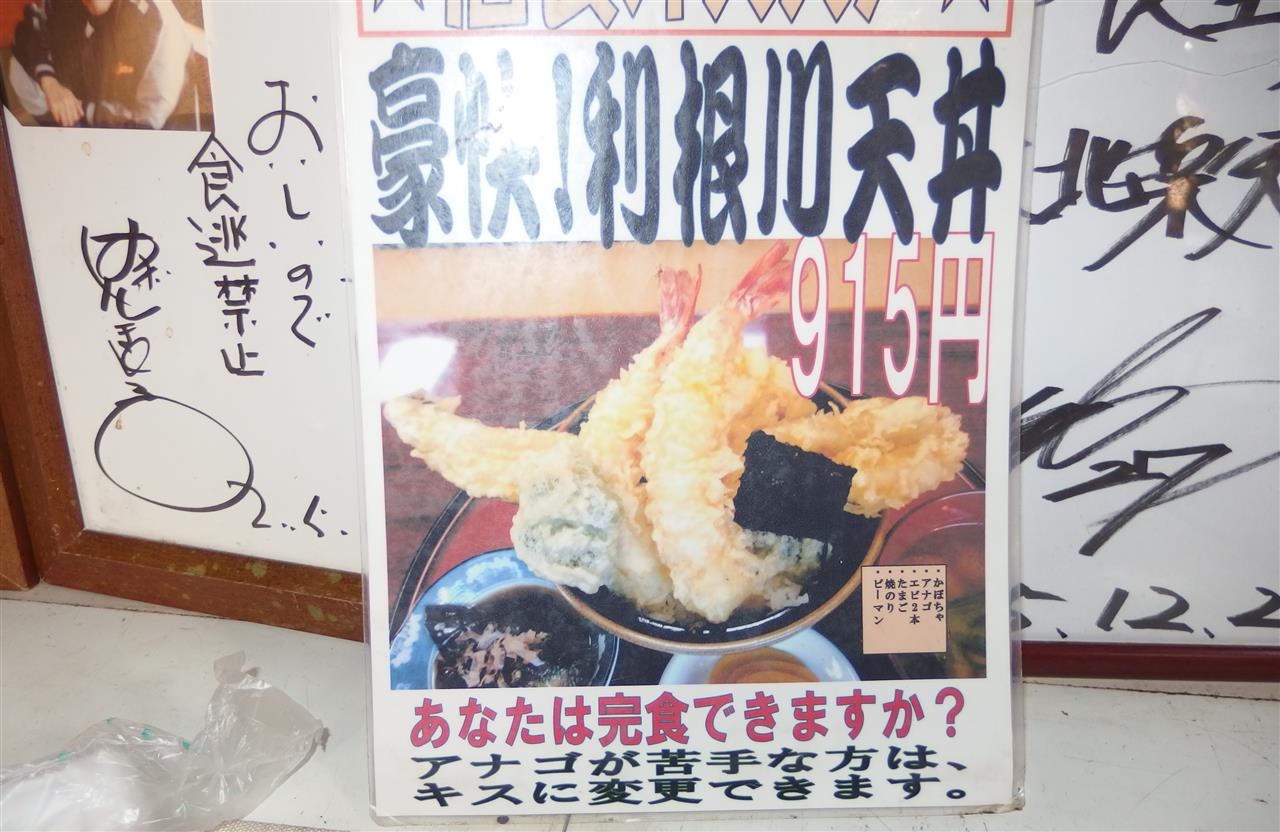 おいしいので
食逃禁止
豪快!利根川天丼
915円
・かぼちゃ
・アナゴ
・エビ2本
・たまご
・焼のり
・ピーマン
あなたは完食できますか?
アナゴが苦手な方は、
キスに変更できます。
北楽天
27
.12.2